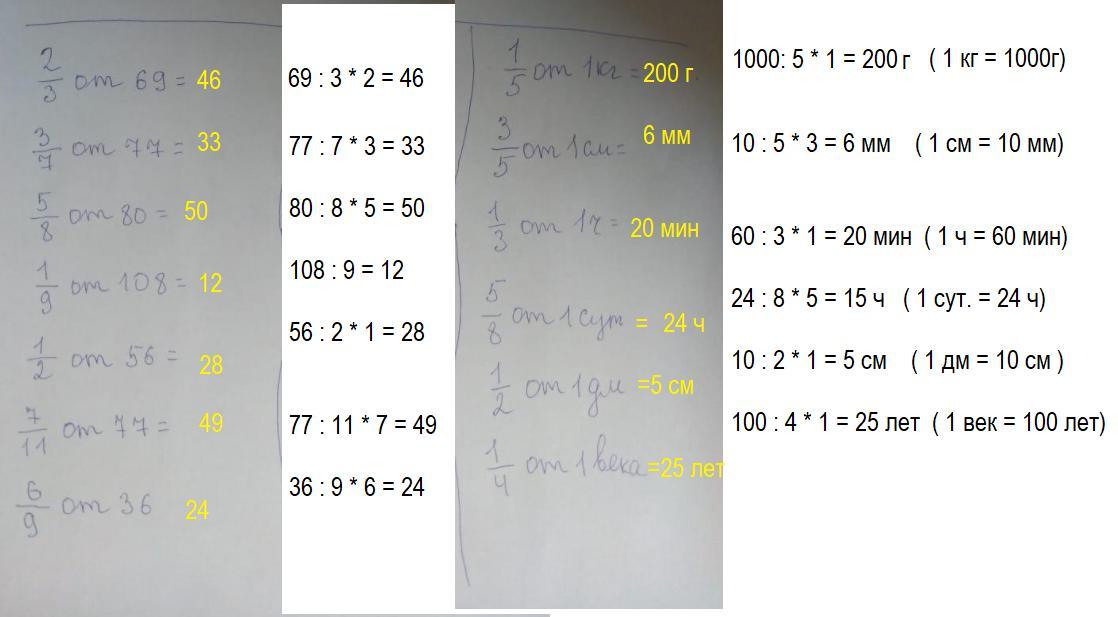 2/3 от 69 = 46
3/7 от 77 = 33
5/8 от 80 = 50
1/9 от 108 = 12
1/2 от 56 = 28
7/11 от 77 = 49
6/9 от 36 24
69 : 3 * 2 = 46
77 : 7 * 3 = 33
80 : 8 * 5 = 50
108 : 9 = 12
56 : 2 * 1 = 28
77 : 11 * 7 = 49
36 : 9 * 6 = 24
1/5 от 1кг = 200 г
3/5 от 1см = 6 мм
1/3 от 1ч = 20 мин
5/8 от 1 сут = 24 ч
1/2 от 1дм =5 см
1/4 от 1 века =25 лет
1000: 5 * 1 = 200 г ( 1 кг = 1000г)
10 : 5 * 3 = 6 мм ( 1 см = 10 мм)
60 : 3 * 1 = 20 мин ( 1 ч = 60 мин)
24 : 8 * 5 = 15 ч ( 1 сут. = 24 ч)
10 : 2 * 1 = 5 см ( 1 дм = 10 см )
100 : 4 * 1 = 25 лет ( 1 век = 100 лет)